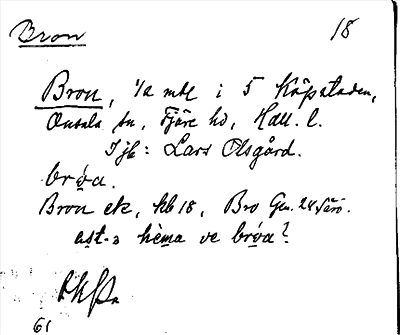 Bron 18
Bron, 1/2 mtl i 5 Köpstaden,
Onsala sn, Fjäre hd, Hall. l.
Ijb: Lars Olsgård.
bro̤a.
Bron ek, hb 18, Bro Gen. 24
hèma ve bro̤a?
61